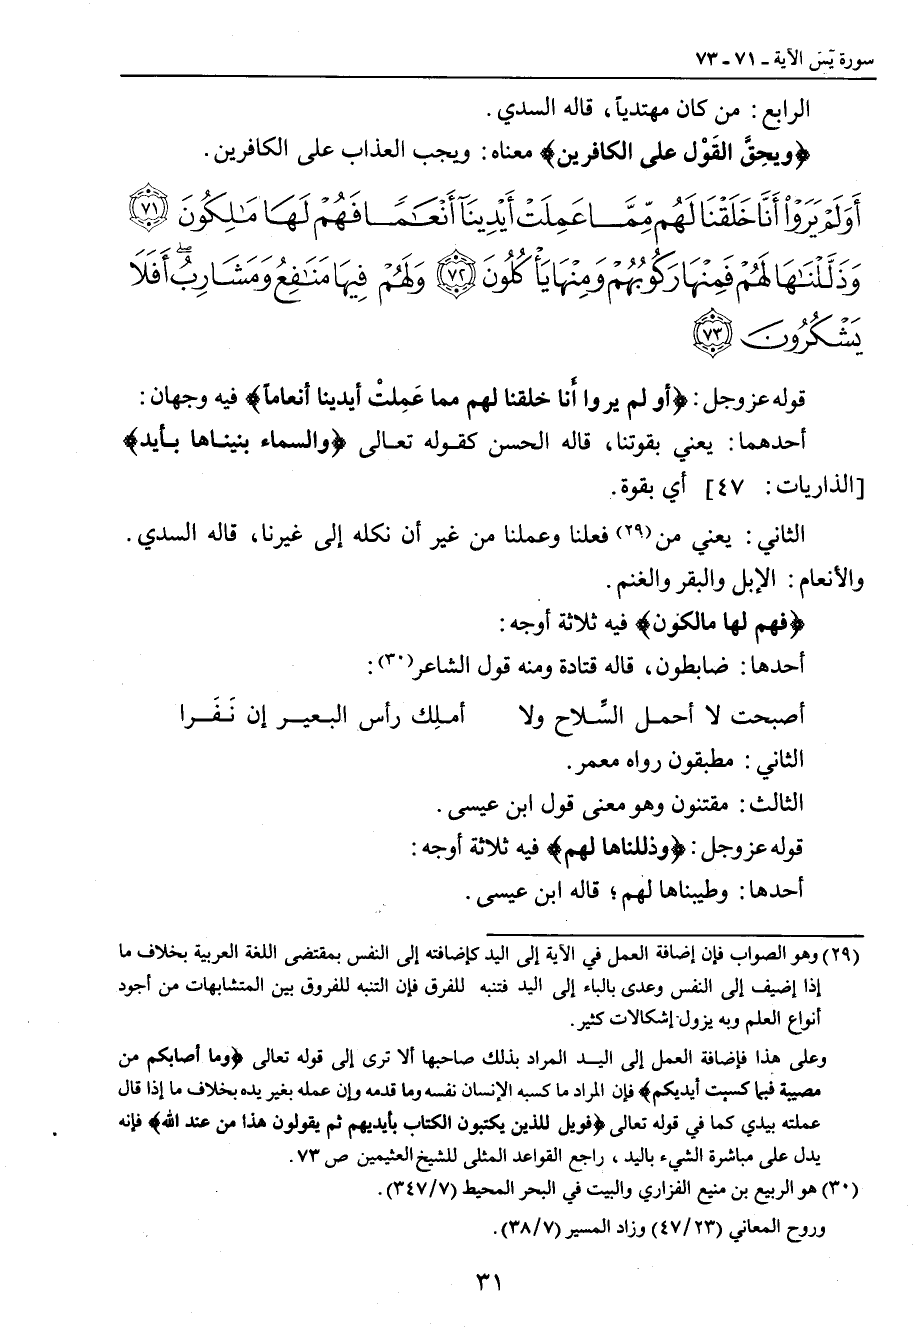 سورة يسَ الآية ـ ٧١ ـ ٧٣
الرابع: من كان مهتدياً، قاله السدي.
﴿ويحِقَّ القَوْل على الكافرين﴾ معناه: ويجب العذاب على الكافرين.
أَوَلَمْ يَرَوْا۟ أَنَّا خَلَقْنَا لَهُم مِّمَّا عَمِلَتْ أَيْدِينَآ أَنْعَـٰمًا فَهُمْ لَهَا مَـٰلِكُونَ ٧١
وَذَلَّلْنَـٰهَا لَهُمْ فَمِنْهَا رَكُوبُهُمْ وَمِنْهَا يَأْكُلُونَ ٧٢ وَلَهُمْ فِيهَا مَنَـٰفِعُ وَمَشَارِبُ ۖ أَفَلَا
يَشْكُرُونَ ٧٣
قوله عز وجل: ﴿أو لم يروا أَنا خلقنا لهم مما عَمِلتْ أيدينا أنعاماً﴾ فيه وجهان:
أحدهما: يعني بقوتنا، قاله الحسن كقوله تعالى ﴿والسماء بنيناها بأيد﴾
[الذاريات: ٤٧] أي بقوة.
الثاني: يعني من(٢٩) فعلنا وعملنا من غير أن نكله إلى غيرنا، قاله السدي.
والأنعام: الإبل والبقر والغنم.
﴿فهم لها مالكون﴾ فيه ثلاثة أوجه:
أحدها: ضابطون، قاله قتادة ومنه قول الشاعر(٣٠):
أصبحت لا أحمل السِّلاح ولا أملِك رأس البعير إن نَفَرا
الثاني: مطبقون رواه معمر.
الثالث: مقتنون وهو معنى قول ابن عيسى.
قوله عز وجل: ﴿وذللناها لهم﴾ فيه ثلاثة أوجه:
أحدها: وطيبناها لهم؛ قاله ابن عيسى.
(٢٩) وهو الصواب فإن إضافة العمل في الآية إلى اليد كإضافته إلى النفس بمقتضى اللغة العربية بخلاف ما
إذا إضيف إلى النفس وعدى بالباء إلى اليد فتنبه للفرق فإن التنبه للفروق بين المتشابهات من أجود
أنواع العلم وبه يزول إشكالات كثير.
وعلى هذا فإضافة العمل إلى اليد المراد بذلك صاحبها ألا ترى إلى قوله تعالى ﴿وما أصابكم من
مصيبة فبما كسبت أيديكم﴾ فإن المراد ما كسبه الإنسان نفسه وما قدمه وإن عمله بغير يده بخلاف ما إذا قال
عملته بيدي كما في قوله تعالى ﴿فويل للذين يكتبون الكتاب بأيديهم ثم يقولون هذا من عند الله﴾ فإنه
يدل على مباشرة الشيء باليد، راجع القواعد المثلى للشيخ العثيمين ص ٧٣.
(٣٠) هو الربيع بن منيع الفزاري والبيت في البحر المحيط (٣٤٧/٧).
وروح المعاني (٤٧/٢٣) وزاد المسير (٣٨/٧).
٣١